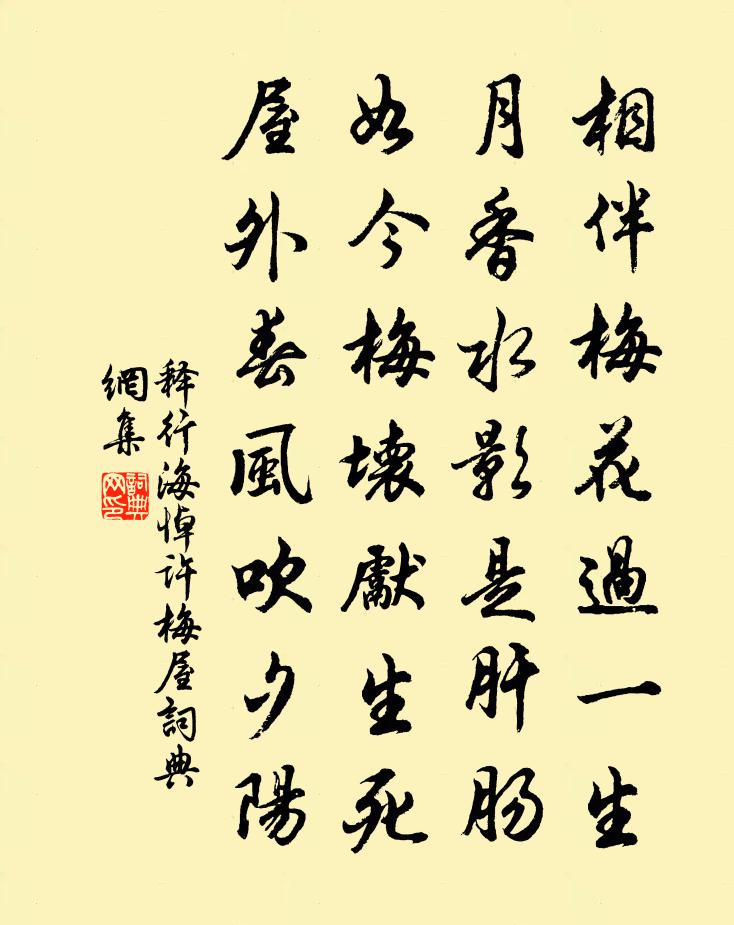 相伴梅花過一生
月香水影是肝肠
如今梅壞獻生死
屋外春風吹夕陽
释行海悼许梅屋詞典
網集
詞典网印